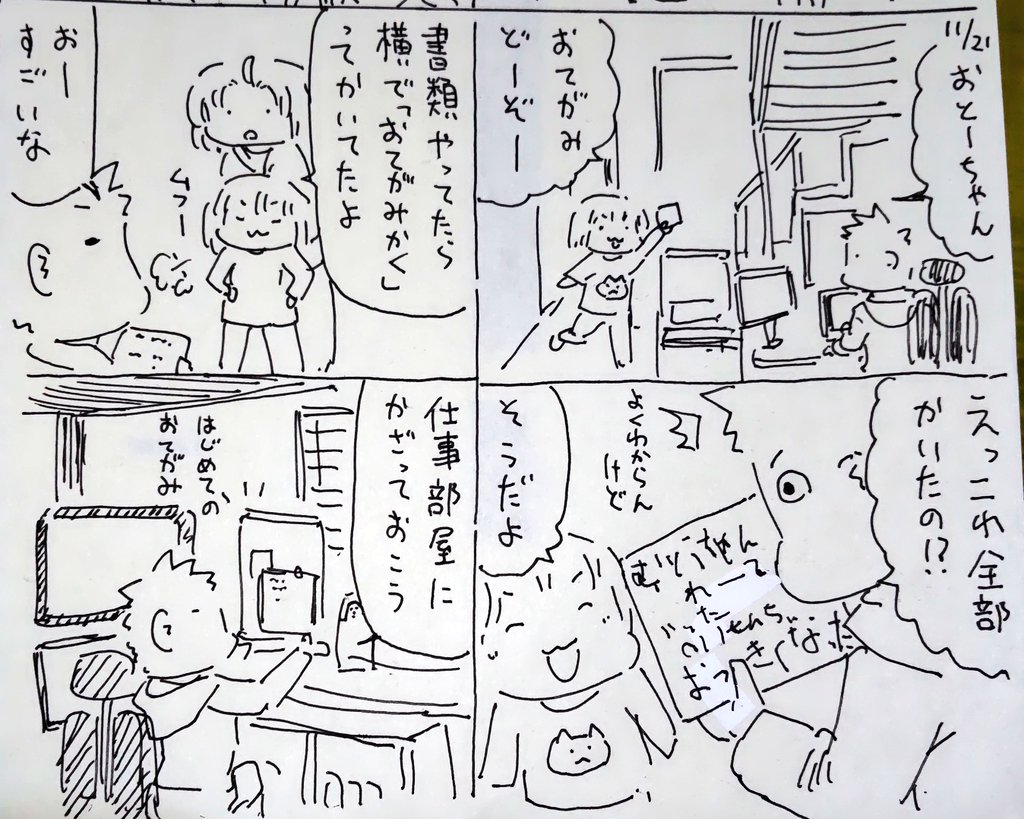 11/21
おとーちゃん
おてがみ
どーぞー
えっこれ全部
かいたの!?
よくわからん
けど
そうだよ
書類やってたら
横で「おてがみかく」
ってかいてたよ
ムフー
おー
すごいな
仕事部屋に
かざっておこう
はじめての
おてがみ